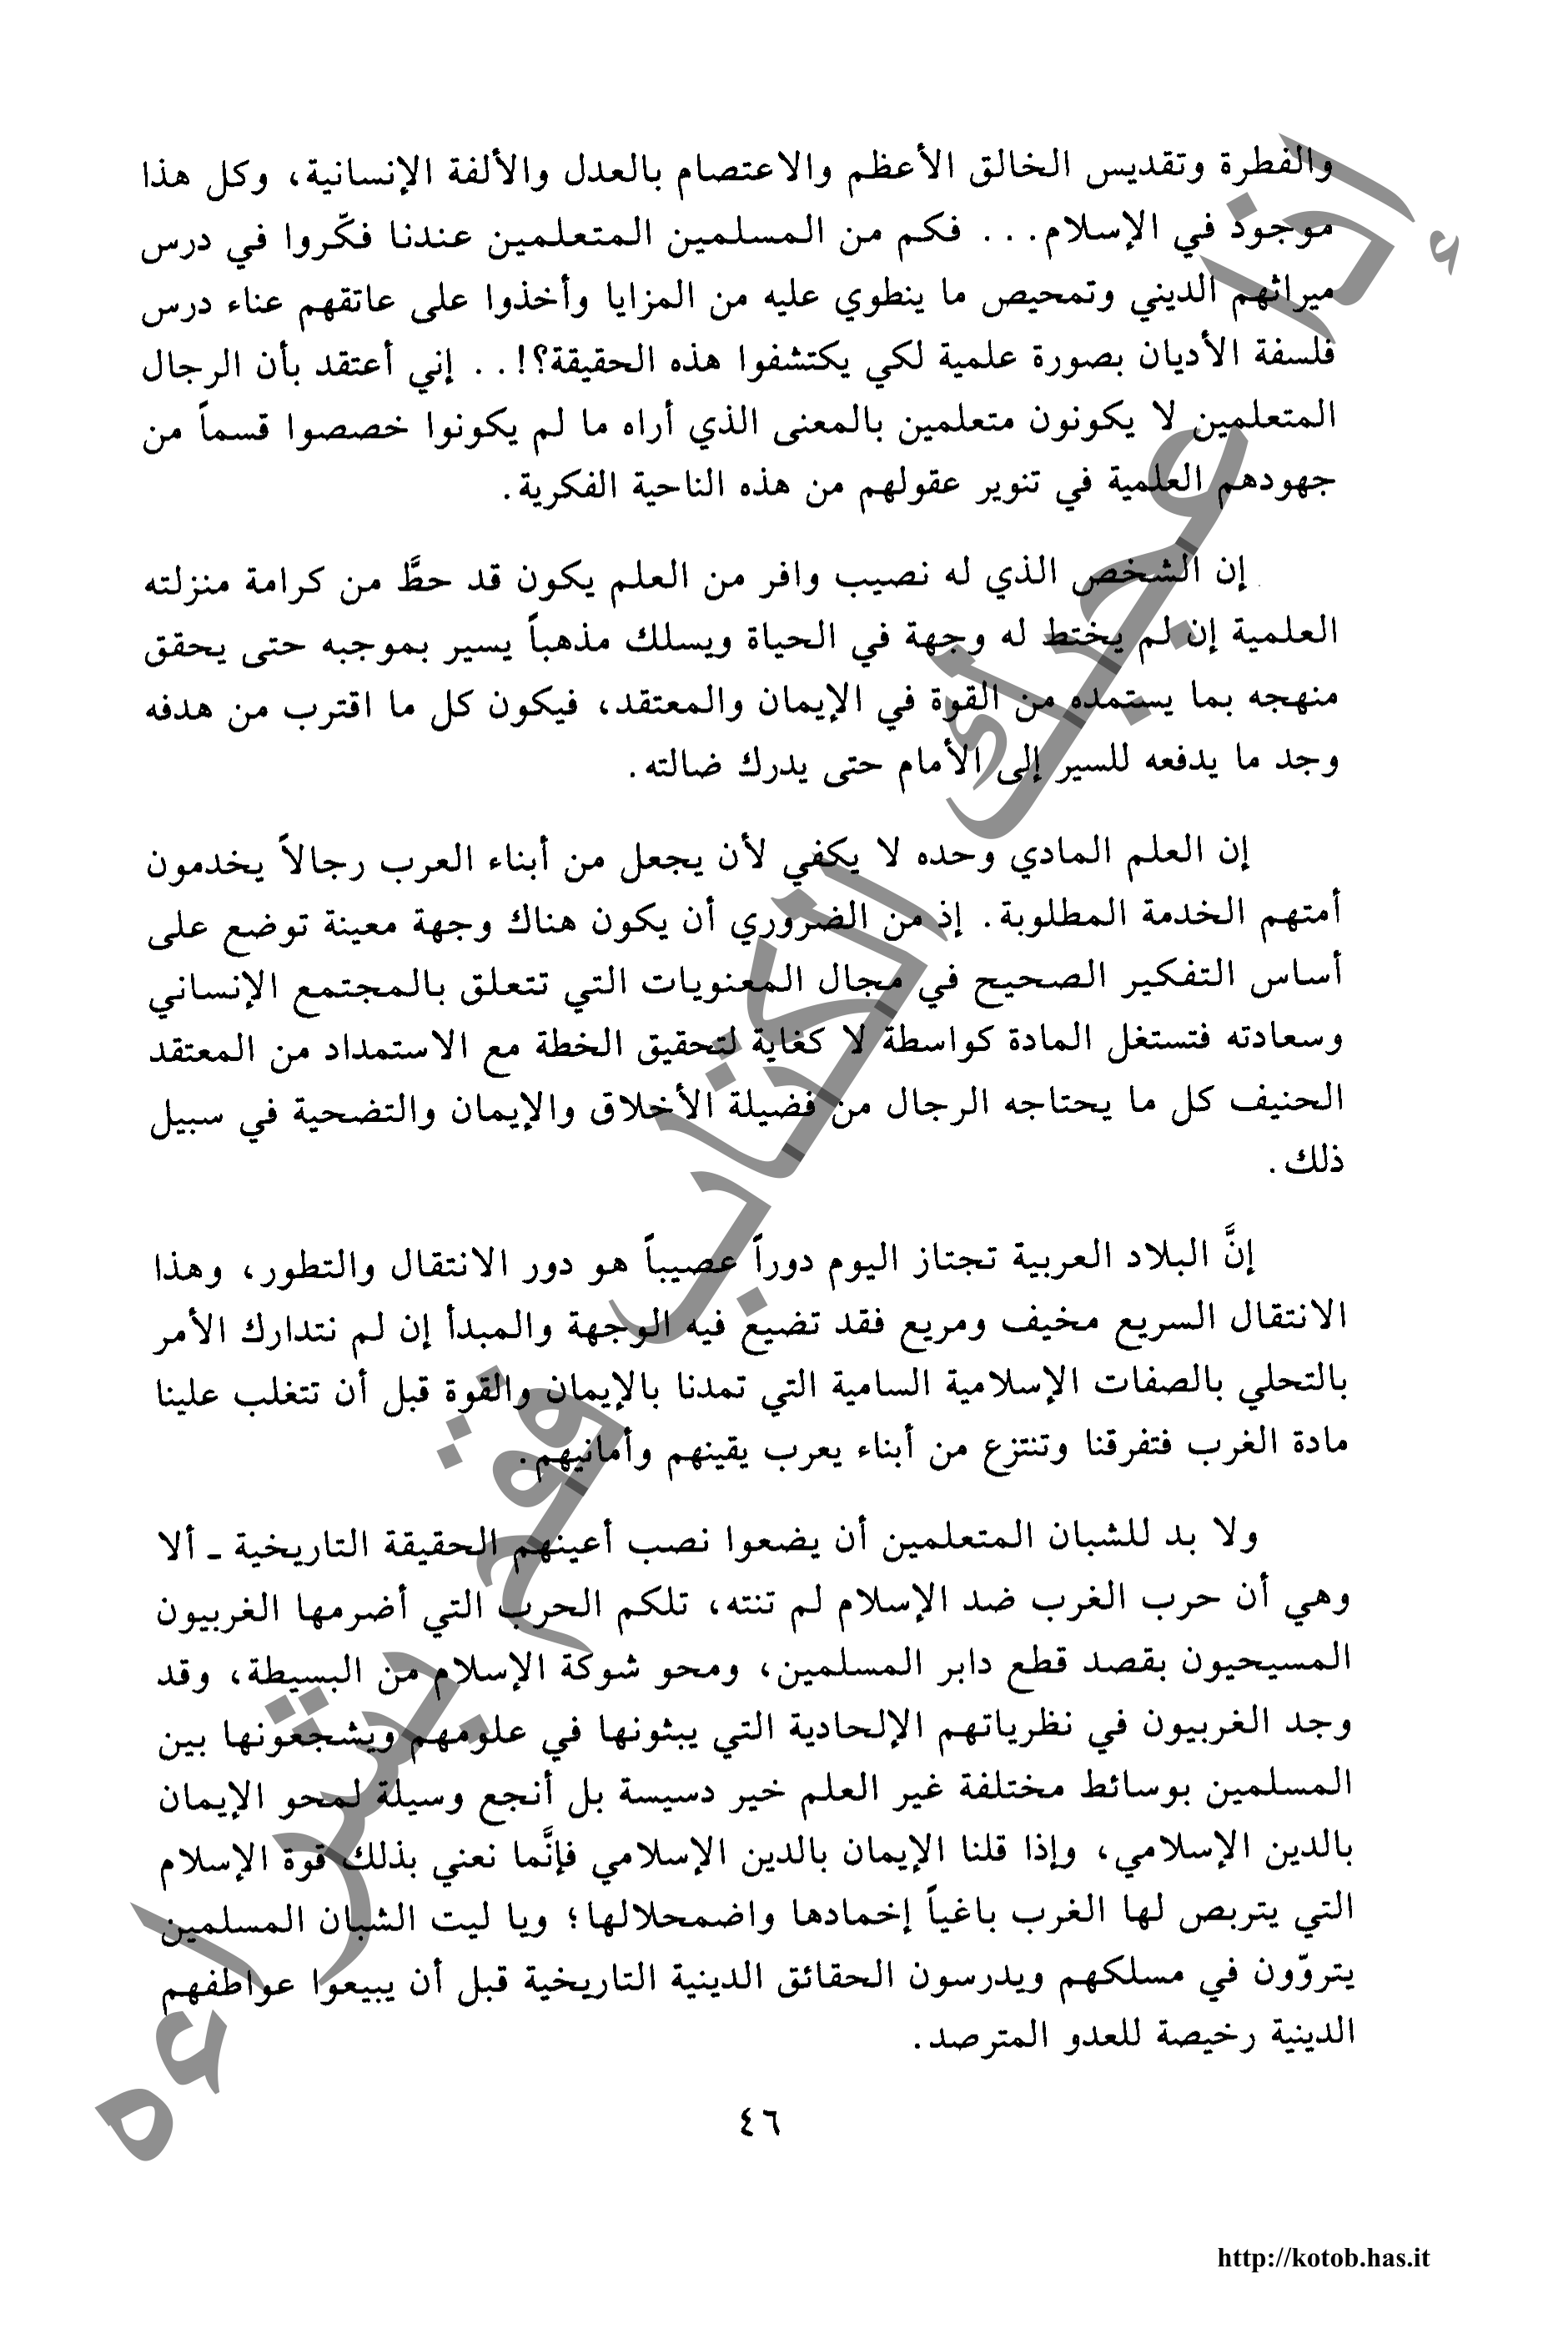 والفطرة وتقديس الخالق الأعظم والاعتصام بالعدل والألفة الإنسانية، وكل هذا
موجود في الإسلام... فكم من المسلمين المتعلمين عندنا فكّروا في درس
ميراثهم الديني وتمحيص ما ينطوي عليه من المزايا وأخذوا على عاتقهم عناء درس
فلسفة الأديان بصورة علمية لكي يكتشفوا هذه الحقيقة؟!.. إني أعتقد بأن الرجال
المتعلمين لا يكونون متعلمين بالمعنى الذي أراه ما لم يكونوا خصصوا قسماً من
جهودهم العلمية في تنوير عقولهم من هذه الناحية الفكرية.
إن الشخص الذي له نصيب وافر من العلم يكون قد حطَّ من كرامة منزلته
العلمية إن لم يختط له وجهة في الحياة ويسلك مذهباً يسير بموجبه حتى يحقق
منهجه بما يستمده من القوة في الإيمان والمعتقد، فيكون كل ما اقترب من هدفه
وجد ما يدفعه للسير إلى الأمام حتى يدرك ضالته.
إن العلم المادي وحده لا يكفي لأن يجعل من أبناء العرب رجالاً يخدمون
أمتهم الخدمة المطلوبة. إذ من الضروري أن يكون هناك وجهة معينة توضع على
أساس التفكير الصحيح في مجال المعنويات التي تتعلق بالمجتمع الإنساني
وسعادته فتستغل المادة كواسطة لا كغاية لتحقيق الخطة مع الاستمداد من المعتقد
الحنيف كل ما يحتاجه الرجال من فضيلة الأخلاق والإيمان والتضحية في سبيل
ذلك.
إنَّ البلاد العربية تجتاز اليوم دوراً عصيباً هو دور الانتقال والتطور، وهذا
الانتقال السريع مخيف ومريع فقد تضيع فيه الوجهة والمبدأ إن لم نتدارك الأمر
بالتحلي بالصفات الإسلامية السامية التي تمدنا بالإيمان والقوة قبل أن تتغلب علينا
مادة الغرب فتفرقنا وتنتزع من أبناء يعرب يقينهم وأمانيهم.
ولا بد للشبان المتعلمين أن يضعوا نصب أعينهم الحقيقة التاريخية ـ ألا
وهي أن حرب الغرب ضد الإسلام لم تنته، تلكم الحرب التي أضرمها الغربيون
المسيحيون بقصد قطع دابر المسلمين، ومحو شوكة الإسلام من البسيطة، وقد
وجد الغربيون في نظرياتهم الإلحادية التي يبثونها في علومهم ويشجعونها بين
المسلمين بوسائط مختلفة غير العلم خير دسيسة بل أنجع وسيلة لمحو الإيمان
بالدين الإسلامي، وإذا قلنا الإيمان بالدين الإسلامي فإنَّما نعني بذلك قوة الإسلام
التي يتربص لها الغرب باغياً إخمادها واضمحلالها؛ ويا ليت الشبان المسلمين
يتروّون في مسلكهم ويدرسون الحقائق الدينية التاريخية قبل أن يبيعوا عواطفهم
الدينية رخيصة للعدو المترصد.
٤٦
إذا أعجبك الكتاب قم بشراءه
http://kotob.has.it